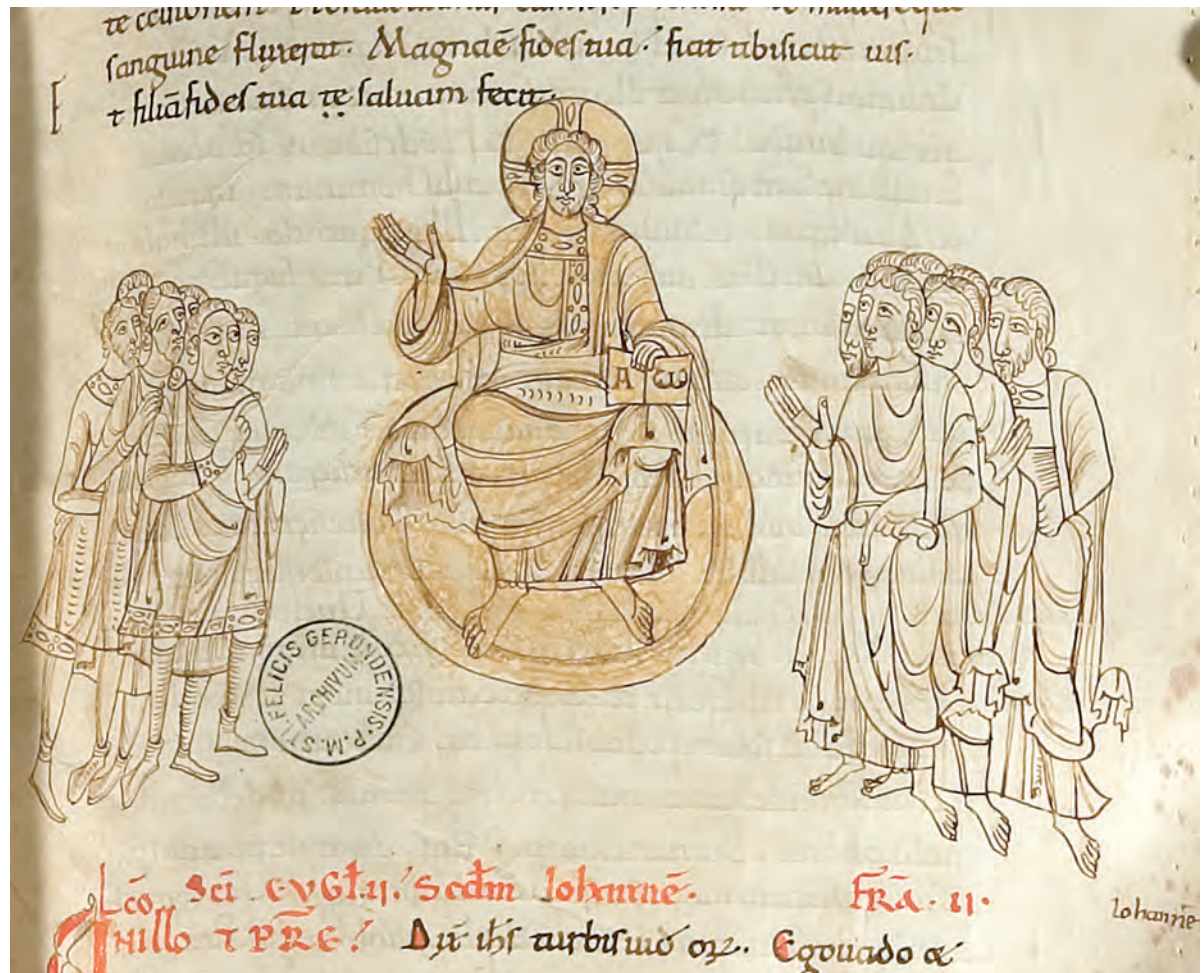 sanguine fluxerat. Magna ē fides tua. fiat tibi sicut uis.
E
t filia fides tua te saluam fecit.
A ω
STI. FELICIS GERUNDENSIS. P.M.
ARCHIVUM
Lcō Sci euGłii. Scdm Iohannē. FRĀ. II.
Iohannē
IN illo TPRE. Dix ihs turbis iudeorꝝ. Ego uado &